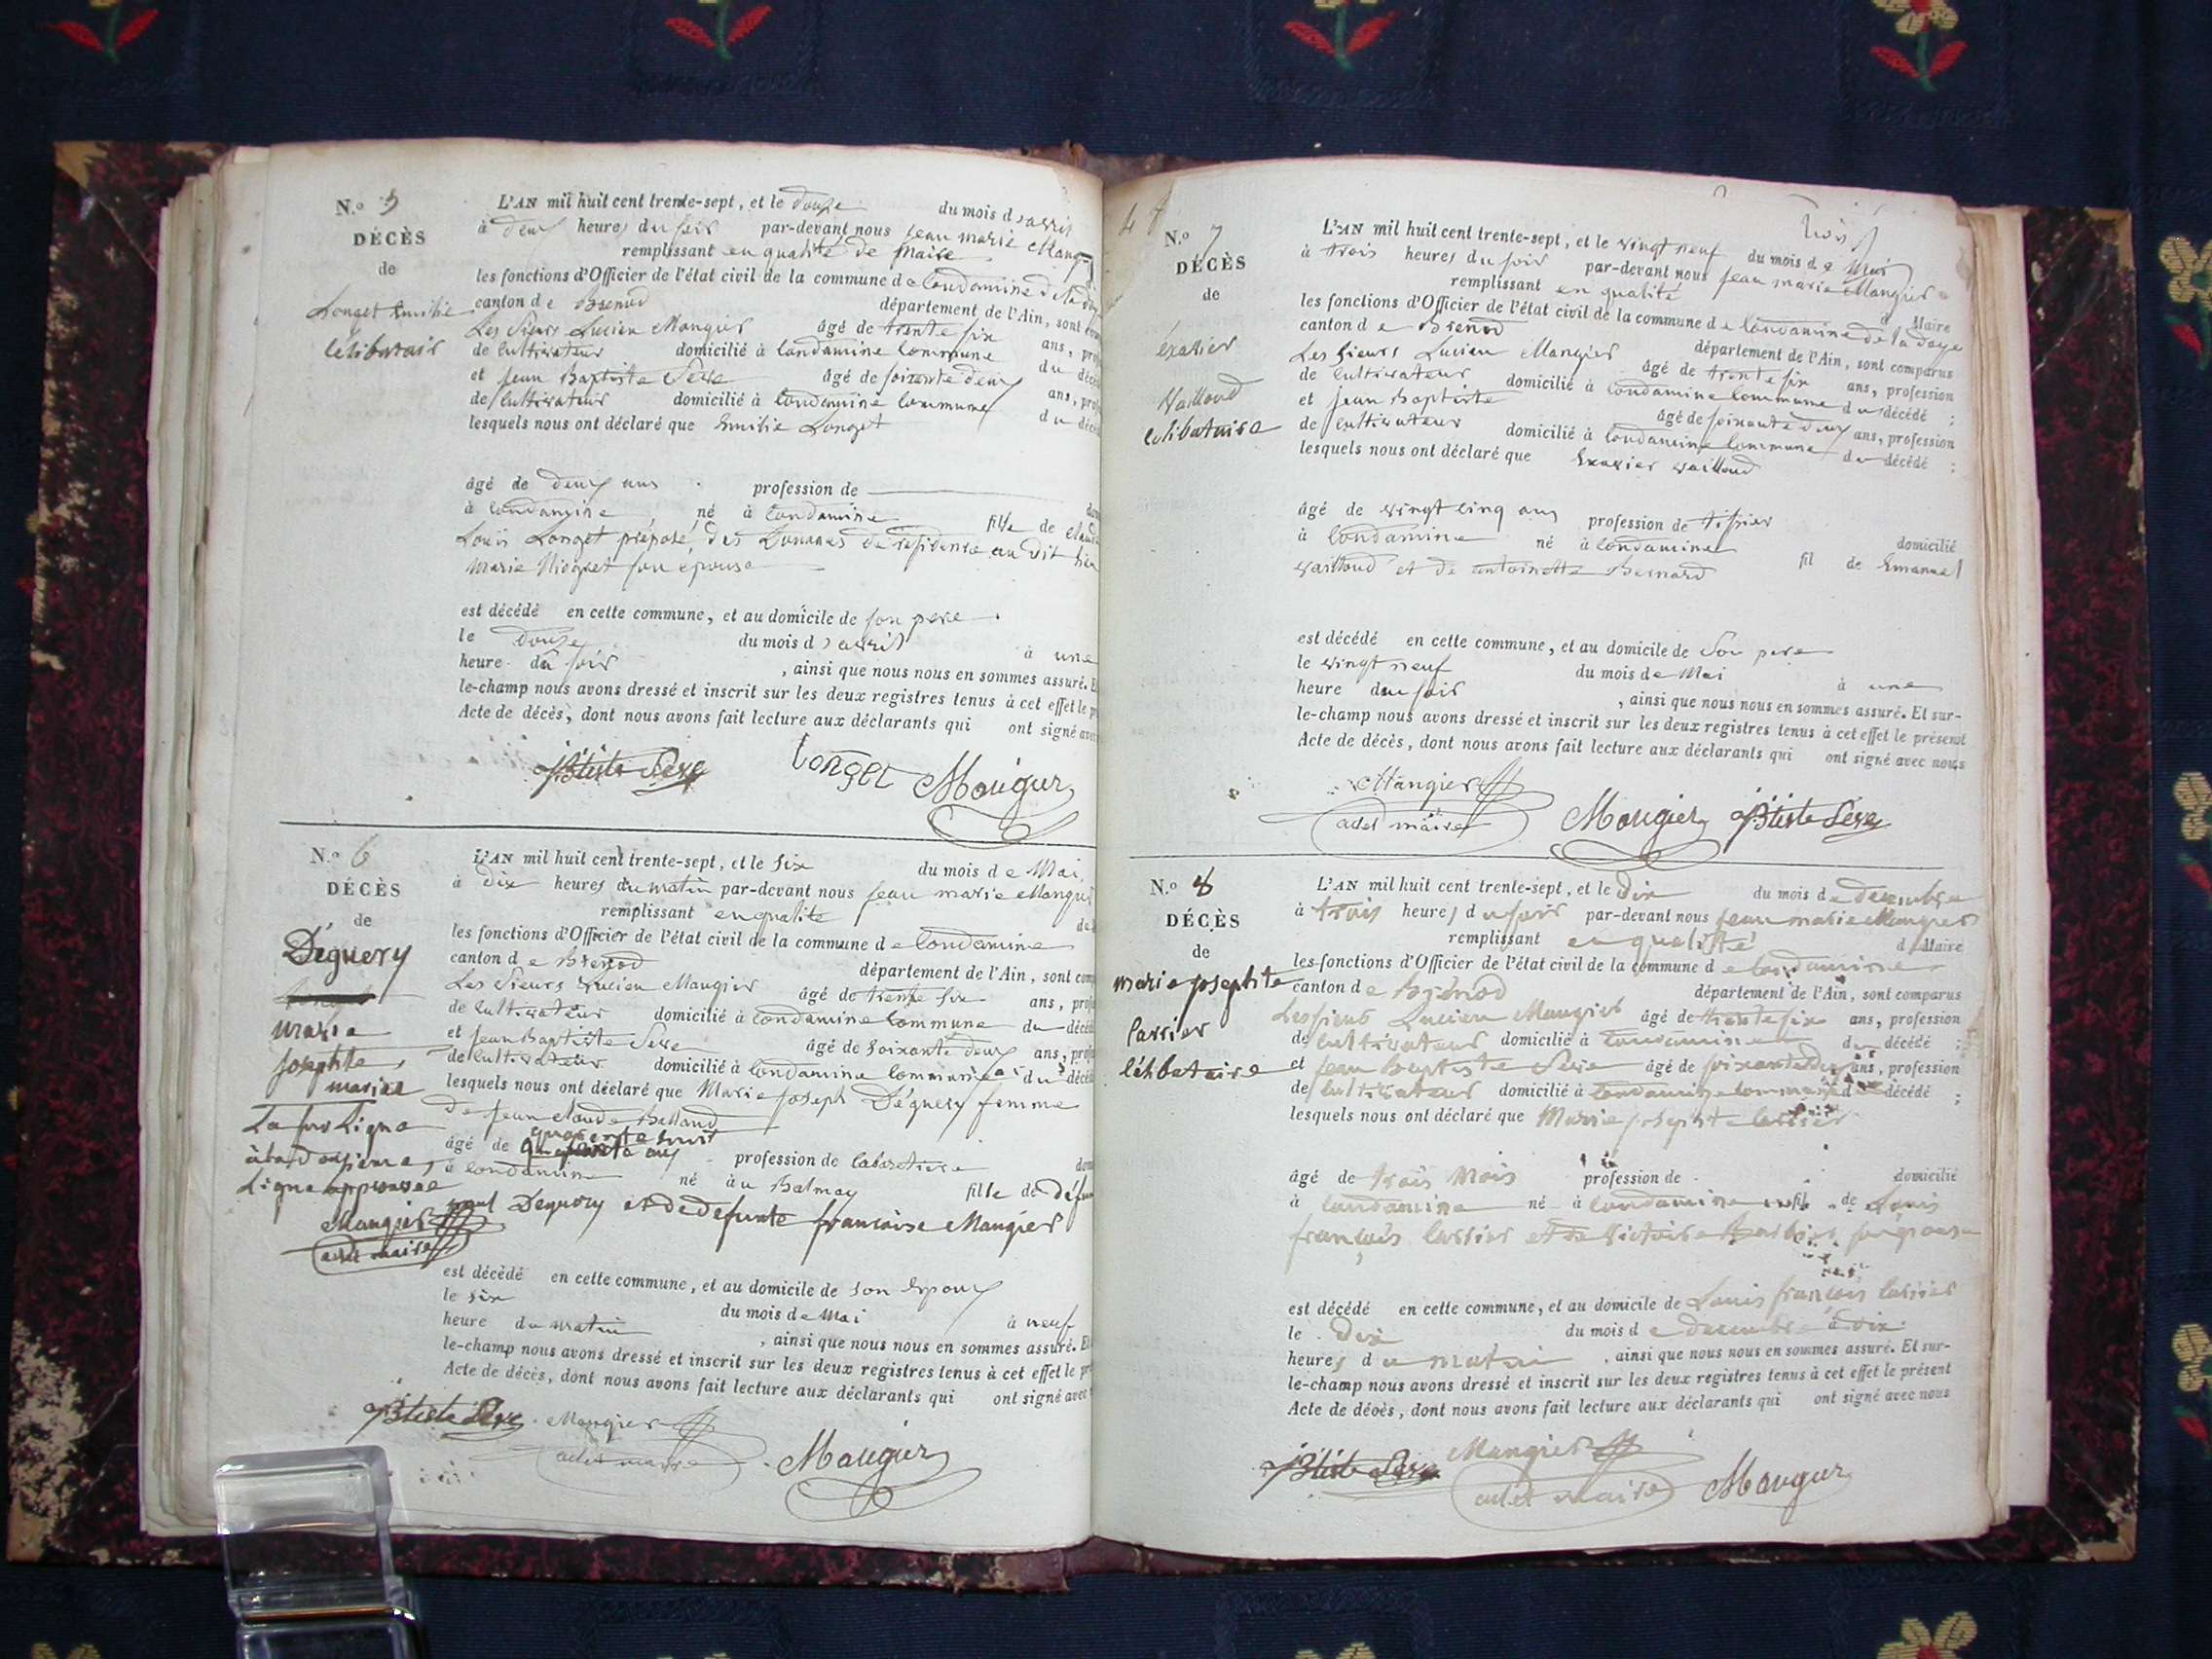 N.o 5
DÉCÈS
de
Longet Emilie
célibatair
L'AN mil huit cent trente-sept, et le douze du mois d'avril
à deux heures du soir par-devant nous jean marie Maug
remplissant en qualité de Maire
les fonctions d'Officier de l'état civil de la commune de Condamine de la doy
canton de Brenod département de l'Ain, sont com
Les sieurs Lucien Maugier âgé de trente six ans, prof
de cultivateur domicilié à Condamine Commune du décé
et jean Baptiste Seve âgé de soixente deux ans, prof
de cultivateur domicilié à Condamine Commune du décé
lesquels nous ont déclaré que Emilie Longet
âgé de deux ans profession de
à Condamine né à Condamine fille de claud
Louis Longet préposé des Douanes de résidence au dit lieu
marie son épouse
est décédé en cette commune, et au domicile de son pere
le douze du mois d'avril à une
heure du soir , ainsi que nous nous en sommes assuré. E
le-champ nous avons dressé et inscrit sur les deux registres tenus à cet effet le p
Acte de décès, dont nous avons fait lecture aux déclarants qui ont signé avec
JBtiste Seve Longet Maugier
N.o 6
DÉCÈS
de
Déguery
marie
josephte
mariee
à la douzieme
Ligne approuvee
Maugier
adet maire
L'AN mil huit cent trente-sept, et le six du mois de Mai
à dix heures du matin par-devant nous jean marie Maugier
remplissant en qualite de
les fonctions d'Officier de l'état civil de la commune de Condamine
canton de Brenod département de l'Ain, sont com
Les Sieurs Lucien Maugier âgé de trente six ans, prof
de cultivateur domicilié à Condamine Commune du décé
et jean Baptiste Seve âgé de soixante deux ans, prof
de cultivateur domicilié à Condamine Commune du décé
lesquels nous ont déclaré que Marie joseph Déguery femme
de jean claude Balland
quarente huit
âgé de ans profession de cabaretiere dom
à Condamine né au Balmay fille de défun
Deguery et de defunte francoise Maugier
est décédé en cette commune, et au domicile de son Epoux
le six du mois de Mai à neuf
heure du matin , ainsi que nous nous en sommes assuré. Et
le-champ nous avons dressé et inscrit sur les deux registres tenus à cet effet le pr
Acte de décès, dont nous avons fait lecture aux déclarants qui ont signé avec
JBtiste Seve Maugier
adet maire Maugier
N.o 7
DÉCÈS
de
éxavier
Vailloud
celibataire
trois
L'AN mil huit cent trente-sept, et le vingt neuf du mois de Mai
à trois heures du soir par-devant nous jean marie Maugier
remplissant en qualité d Maire
les fonctions d'Officier de l'état civil de la commune de Condamine de la doye
canton de Brenod département de l'Ain, sont comparus
Les sieurs Lucien Maugier âgé de trente six ans, profession
de cultivateur domicilié à Condamine Commune du décédé ;
et jean Baptiste âgé de soixante deux ans, profession
de cultivateur domicilié à Condamine Commune du décédé ;
lesquels nous ont déclaré que Exavier vailloud
âgé de vingt cinq ans profession de tissier domicilié
à Condamine né à Condamine fil de Emanuel
vailloud et de antoinette Bernard
est décédé en cette commune, et au domicile de Son pere
le vingt neuf du mois de Mai à une
heure du soir , ainsi que nous nous en sommes assuré. Et sur-
le-champ nous avons dressé et inscrit sur les deux registres tenus à cet effet le présent
Acte de décès, dont nous avons fait lecture aux déclarants qui ont signé avec nous
Maugier
adet maire Maugier JBtiste Seve
N.o 8
DÉCÈS
de
marie josephte
Carrier
Célibataire
L'AN mil huit cent trente-sept, et le Dix du mois de decembre
à trois heures du soir par-devant nous jean marie Maugier
remplissant en qualité d Maire
les fonctions d'Officier de l'état civil de la commune de Condamine
canton de Brénod département de l'Ain, sont comparus
Les sieurs Lucien Maugier âgé de trente six ans, profession
de cultivateur domicilié à Condamine du décédé ;
et jean Baptiste Seve âgé de soixante deux ans, profession
de cultivateur domicilié à Condamine Commune d décédé ;
lesquels nous ont déclaré que Marie josephte Carrier
âgé de trois Mois profession de domicilié
à Condamine né à Condamine fil de Louis
françois Carrier et de Victoire son épouse
est décédé en cette commune, et au domicile de Louis françois Carrier
le Dix du mois de decembre à dix
heures du matin , ainsi que nous nous en sommes assuré. Et sur-
le-champ nous avons dressé et inscrit sur les deux registres tenus à cet effet le présent
Acte de décès, dont nous avons fait lecture aux déclarants qui ont signé avec nous
JBtiste Seve Maugier
adet maire Maugier